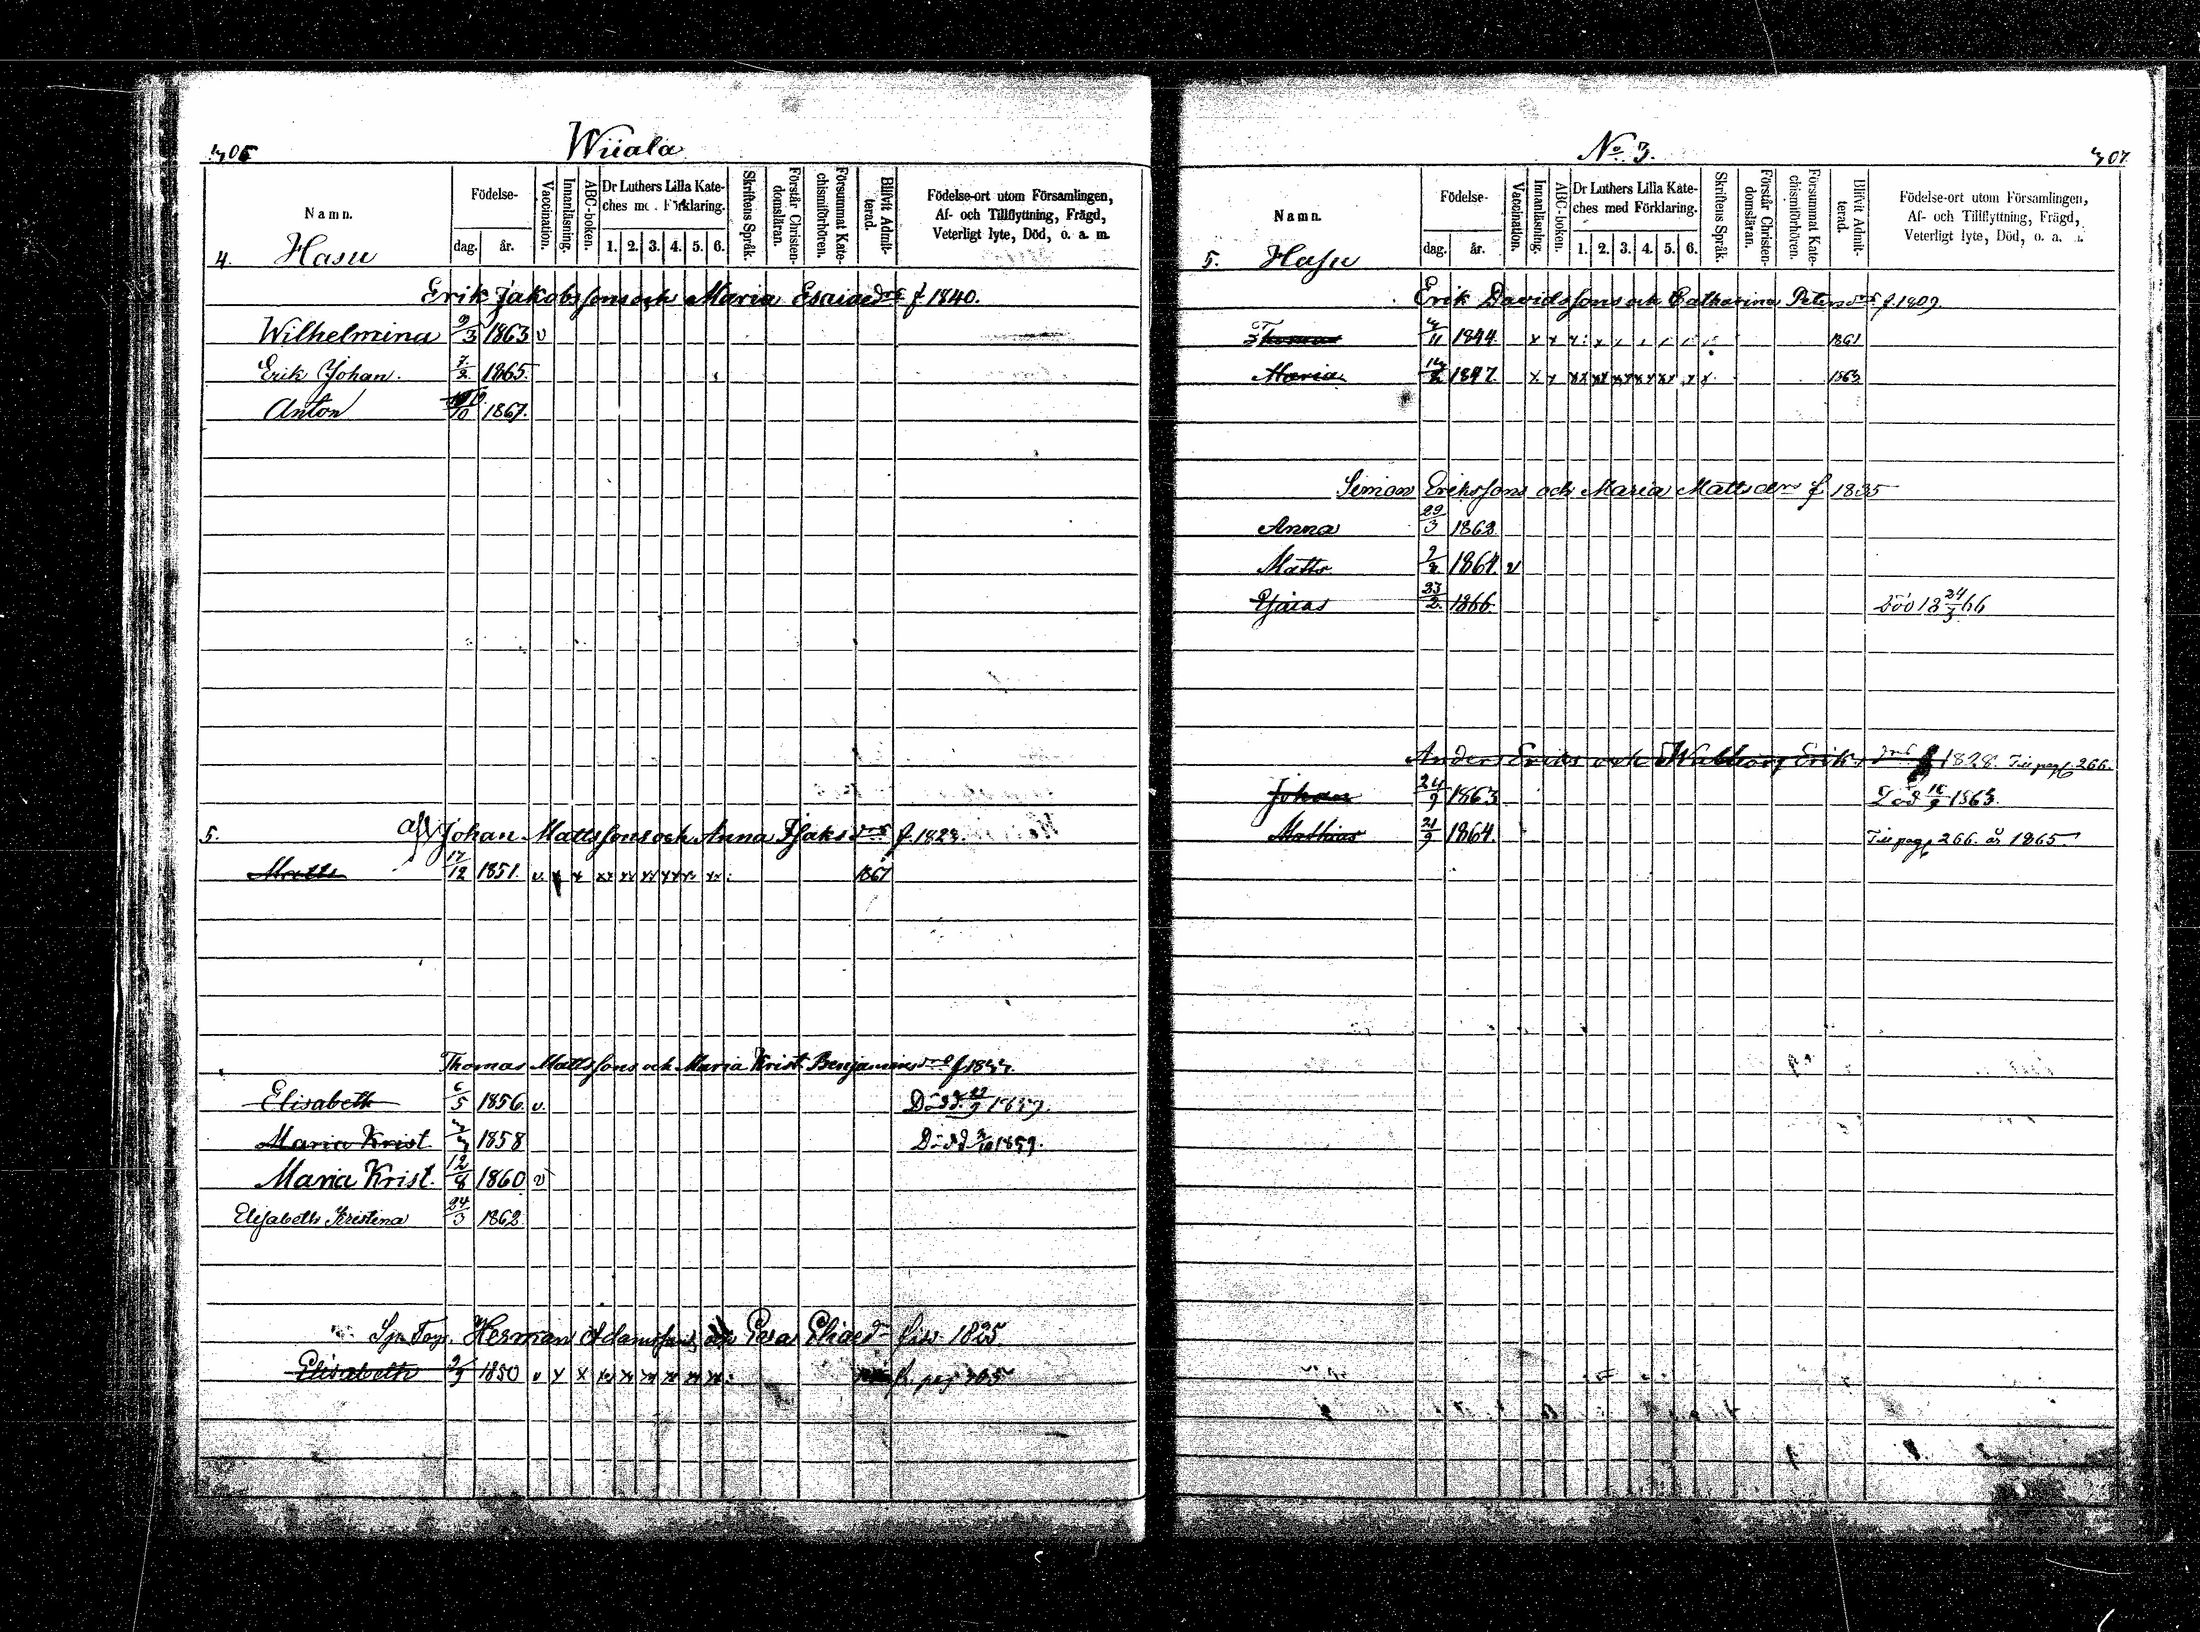 Wiiala
Namn.
Födelse-
dag. år.
Vaccination.
Innanläsning.
ABC-boken.
Dr Luthers Lilla Kate-
ches me. Förklaring.
1. 2. 3. 4. 5. 6.
Skriftens Språk.
Förstår Christen-
domsläran.
Försummat Kate-
chismiförhören.
Blifvit Admit-
terad.
Födelse-ort utom Församlingen,
Af- och Tillflyttning, Frägd,
Veterligt lyte, Död, o. a. m.
4. Hasu
Erik Jakobssons och Maria Esaiaedrs f 1840.
Wilhelmina 9/3 1863 v
Erik Johan. 7/2 1865.
Anton /10 1867.
5. Johan Mattssons och Anna Isaksdrs f. 1823.
Matts 17/12 1851. v x x xx xx xx xx xx xx 1867
Thomas Mattssons och Maria Krist. Benjaminsdrs f 1833.
Elisabeth 6/5 1856. v.
Maria Krist. 1858 Död 1859.
Maria Krist. 12/8 1860 v
Elisabeth Kristina 24/3 1862
Herman Adamssons och Eva Eliaed 1825.
Elisabeth 2/9 1850 v x x xx xx xx xx xx xx f. pag 405
No 3. 307.
Namn.
Födelse-
dag. år.
Vaccination.
Innanläsning.
ABC-boken.
Dr Luthers Lilla Kate-
ches med Förklaring.
1. 2. 3. 4. 5. 6.
Skriftens Språk.
Förstår Christen-
domsläran.
Försummat Kate-
chismiförhören.
Blifvit Admit-
terad.
Födelse-ort utom Församlingen,
Af- och Tillflyttning, Frägd,
Veterligt lyte, Död, o. a.
5. Hasu
Erik Davidssons och Catharina Petersdrs f. 1809
Thomas 1844. 1861
Maria 1847. 1863
Simon Erikssons och Maria Mattsdrs f 1835
Anna 29/3 1862
Matts 9/2 1864. v
Esaias 23/2 1866. Död 18 24/3 66
Anders Eriks och Walborg Eriksdrs f 1828. Till pag 266.
Johan 24/9 1863 Död 1863.
Mathias 21/9 1864. Till pag 266. år 1865.